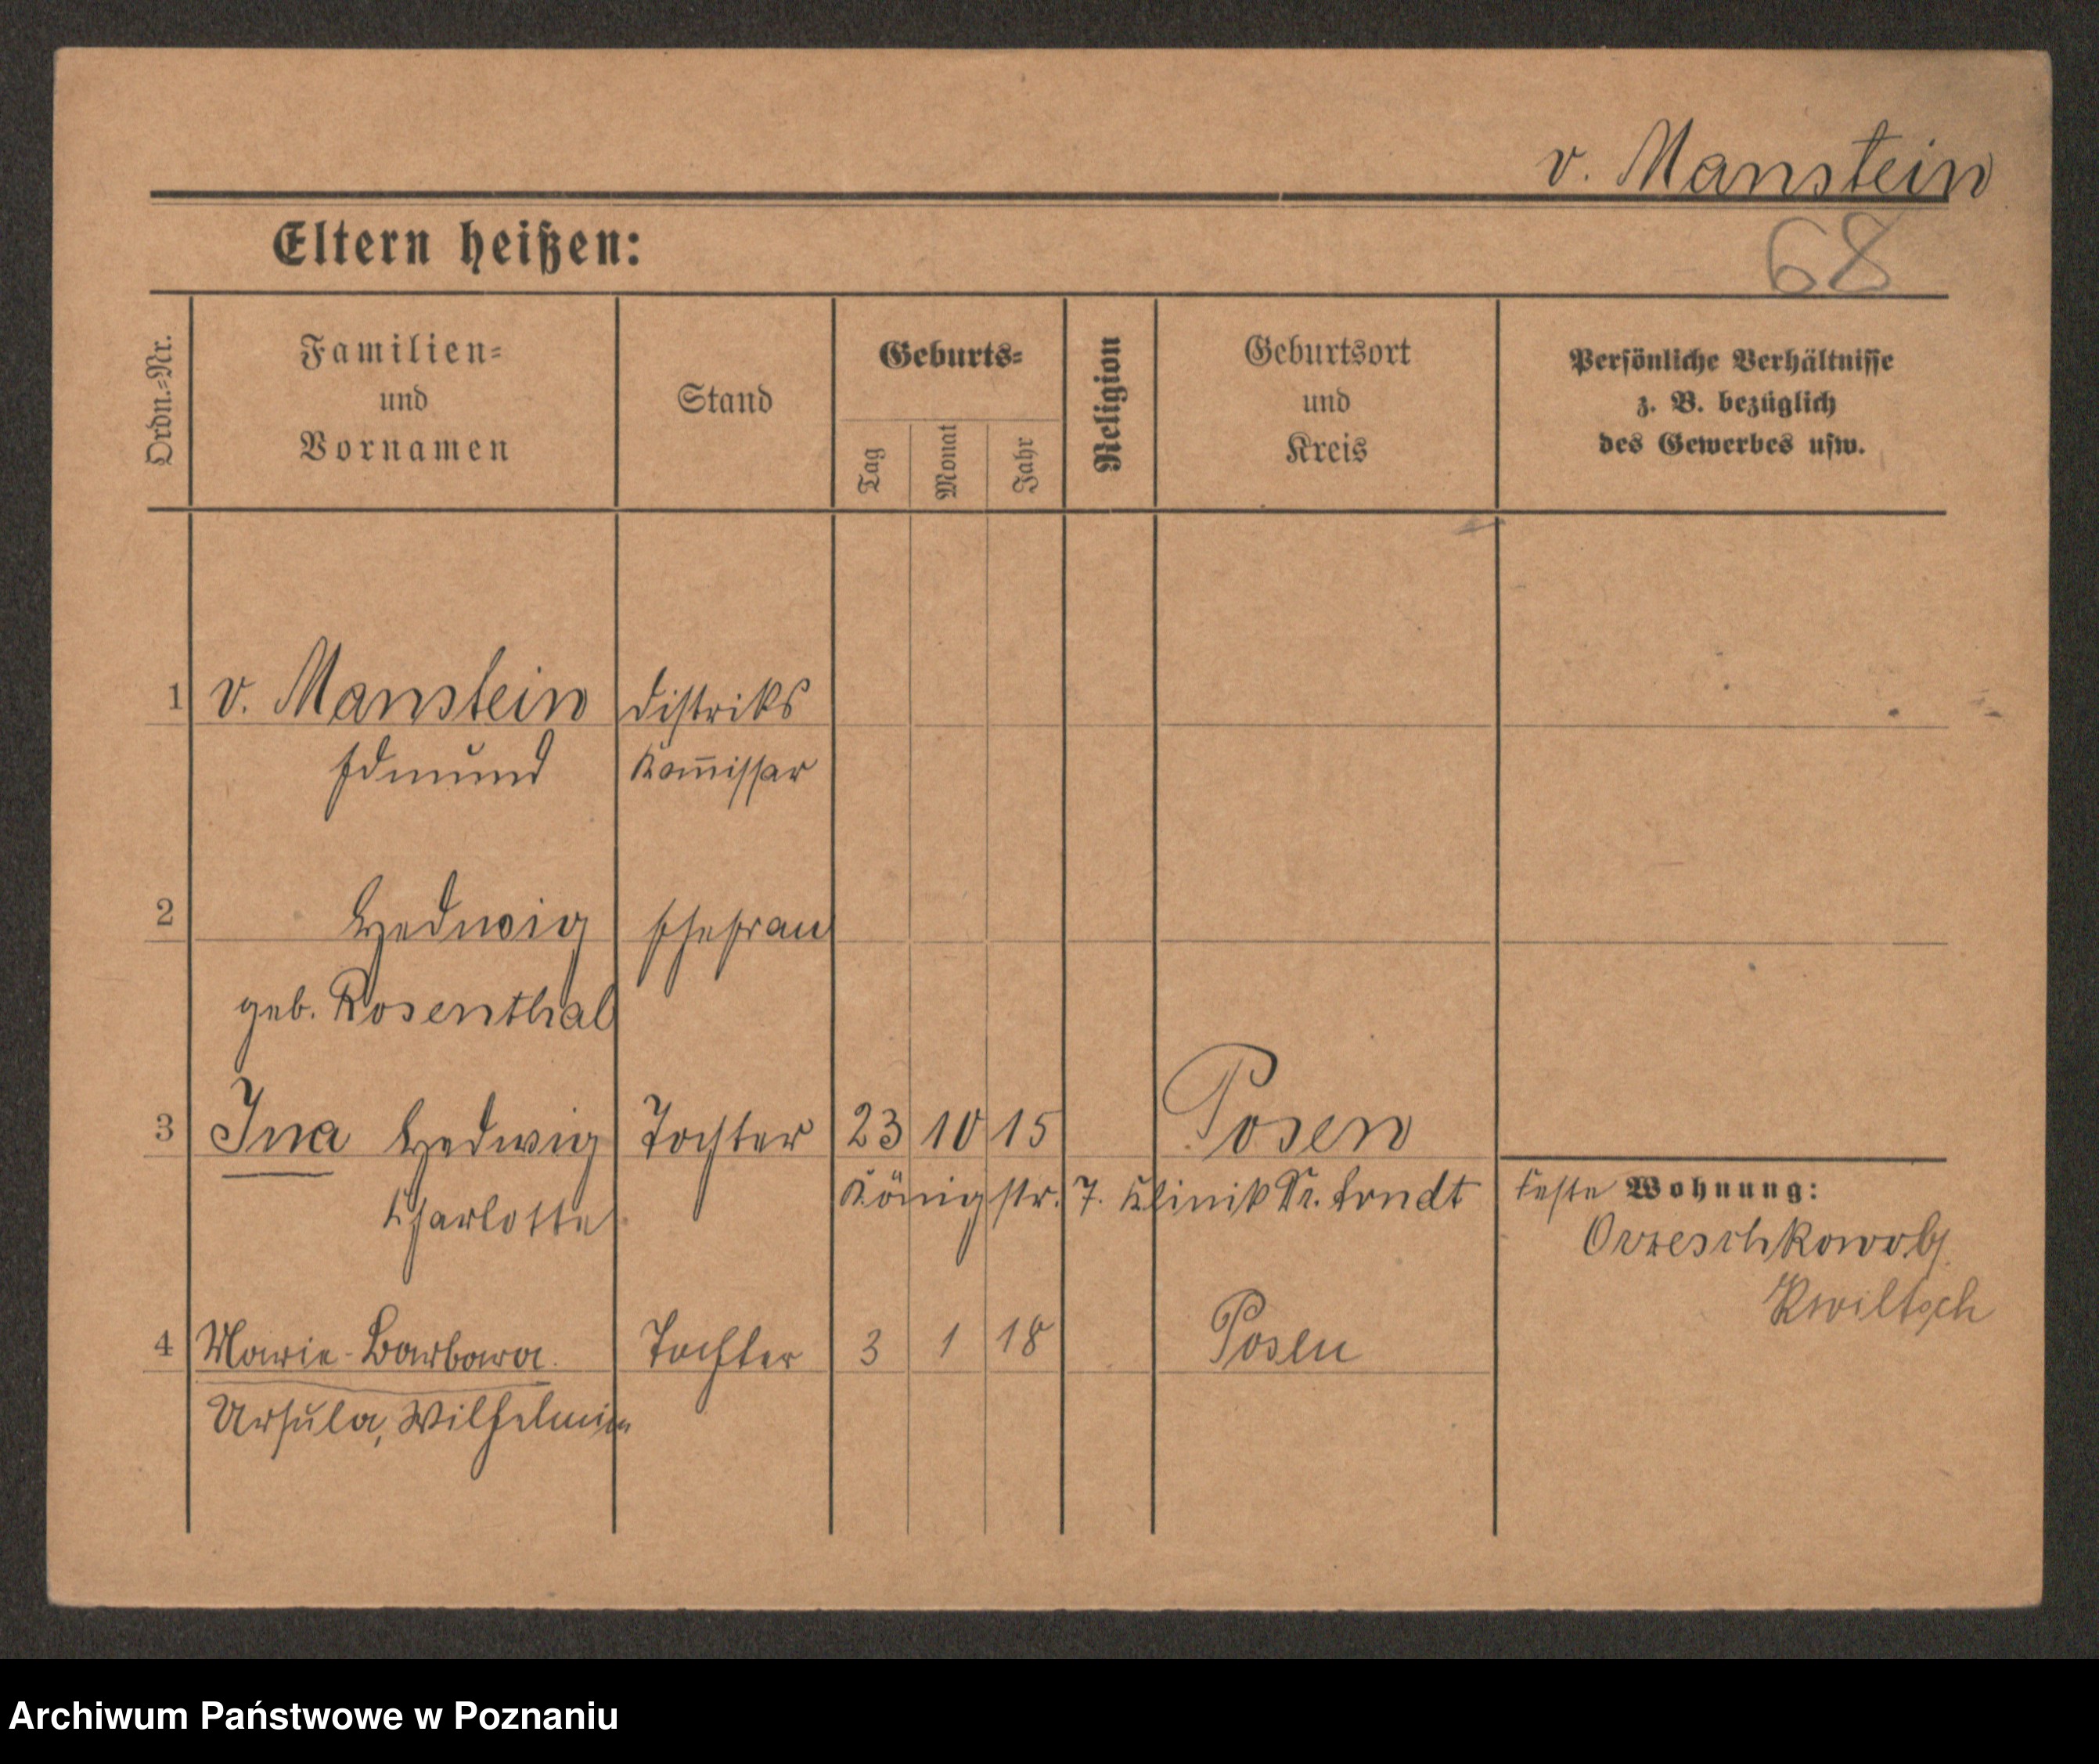 v. Manstein
Eltern heißen:
68
Ordn.-Nr.
Familien-
und
Vornamen
Stand
Geburts-
Tag
Monat
Jahr
Religion
Geburtsort
und
Kreis
Persönliche Verhältnisse
z. B. bezüglich
des Gewerbes usw.
1 v. Manstein Distriks
Edmund Kom̅issar
2 Hedwig Ehefrau
geb. Rosenthal
3 Ina Hedwig Tochter 23 10 15 Posen
Charlotte Königstr. 7. Klinik Dr. Arndt
feste Wohnung:
Kwiltsch
4 Marie-Barbara Tochter 3 1 18 Posen
Ursula, Wilhelmin
Archiwum Państwowe w Poznaniu